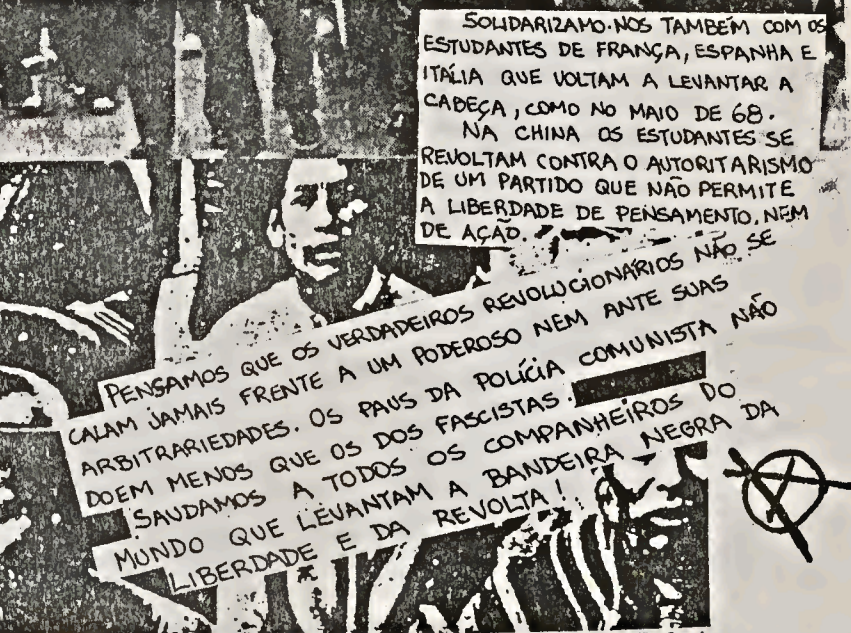 SOLIDARIZAMO-NOS TAMBÉM COM OS
ESTUDANTES DE FRANÇA, ESPANHA E
ITÁLIA QUE VOLTAM A LEVANTAR A
CABEÇA, COMO NO MAIO DE 68.
NA CHINA OS ESTUDANTES SE
REVOLTAM CONTRA O AUTORITARISMO
DE UM PARTIDO QUE NÃO PERMITE
A LIBERDADE DE PENSAMENTO, NEM
DE AÇÃO.
PENSAMOS QUE OS VERDADEIROS REVOLUCIONÁRIOS NÃO SE
CALAM JAMAIS FRENTE A UM PODEROSO NEM ANTE SUAS
ARBITRARIEDADES. OS PAUS DA POLÍCIA COMUNISTA NÃO
DOEM MENOS QUE OS DOS FASCISTAS.
SAUDAMOS A TODOS OS COMPANHEIROS DO
MUNDO QUE LEVANTAM A BANDEIRA NEGRA DA
LIBERDADE E DA REVOLTA!